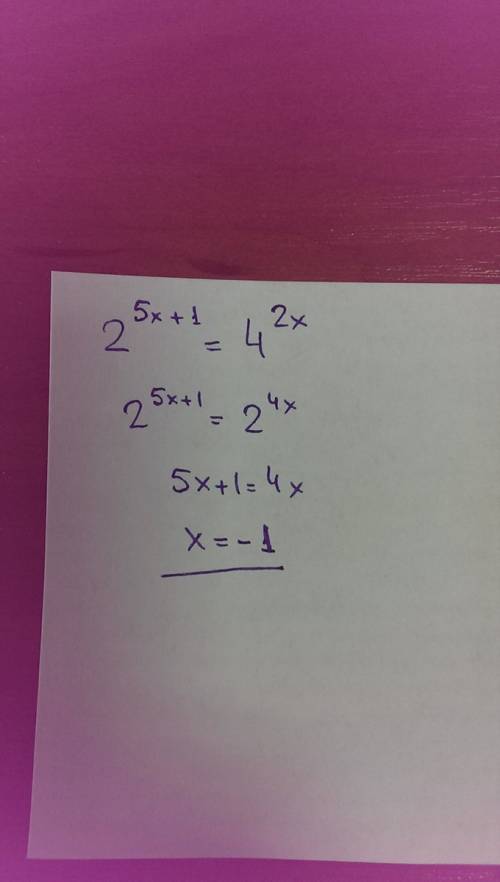 2^{5x+1} = 4^{2x}
2^{5x+1} = 2^{4x}
5x+1=4x
x=-1